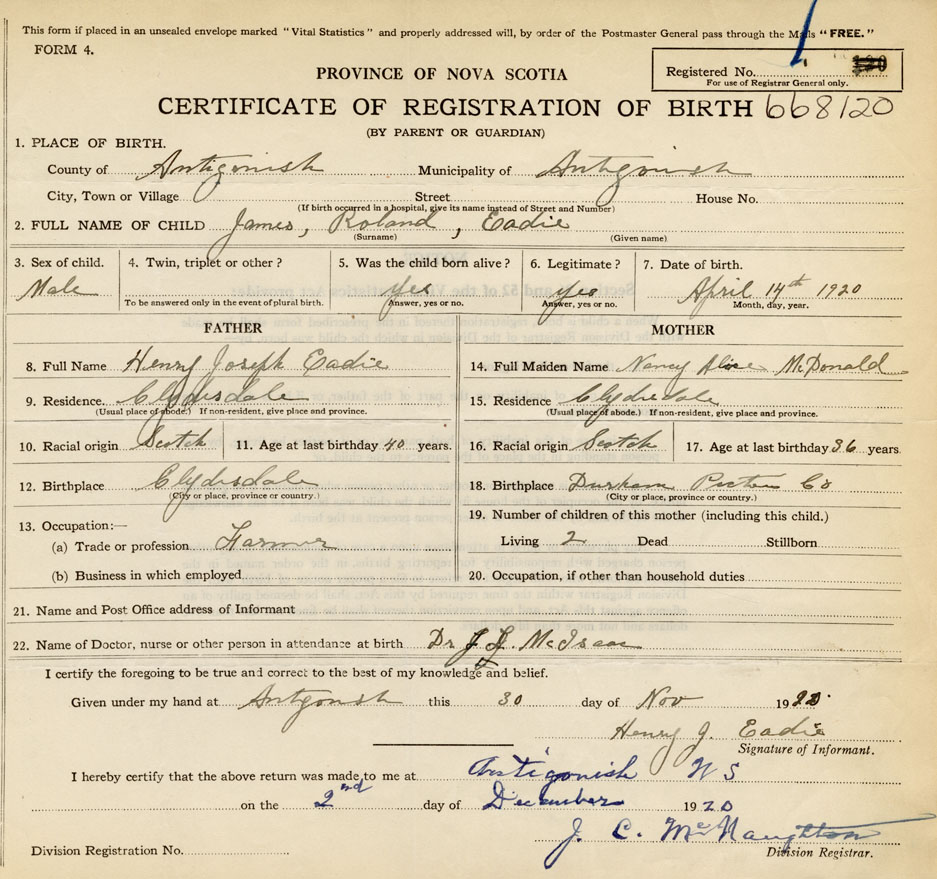 This form if placed in an unsealed envelope marked "Vital Statistics" and properly addressed will, by order of the Postmaster General pass through the Mails "FREE."
FORM 4.
Registered No.
For use of Registrar General only.
PROVINCE OF NOVA SCOTIA
CERTIFICATE OF REGISTRATION OF BIRTH 668120
(BY PARENT OR GUARDIAN)
1. PLACE OF BIRTH.
County of Antigonish Municipality of Antigonish
City, Town or Village Street House No.
(If birth occurred in a hospital, give its name instead of Street and Number)
2. FULL NAME OF CHILD James, Roland, Eadie
(Surname) (Given name)
3. Sex of child. 4. Twin, triplet or other? 5. Was the child born alive? 6. Legitimate? 7. Date of birth.
Male Yes yes April 14th 1920
To be answered only in the event of plural birth. Answer, yes or no. Answer, yes or no. Month, day, year.
FATHER MOTHER
8. Full Name Henry Joseph Eadie 14. Full Maiden Name Nancy Alice McDonald
9. Residence. Clydisdale 15. Residence Clydesdale
(Usual place of abode.) If non-resident, give place and province. (Usual place of abode.) If non-resident, give place and province.
10. Racial origin Scotch 11. Age at last birthday 40 years. 16. Racial origin Scotch 17. Age at last birthday 36 years
12. Birthplace Clydisdale 18. Birthplace Durham Pictou Co
(City or place, province or country.) (City or place, province or country.)
13. Occupation:— 19. Number of children of this mother (including this child.)
(a) Trade or profession Farmer Living 2 Dead Stillborn
(b) Business in which employed 20. Occupation, if other than household duties
21. Name and Post Office address of Informant
22. Name of Doctor, nurse or other person in attendance at birth Dr J. J. McIsaac
I certify the foregoing to be true and correct to the best of my knowledge and belief.
Given under my hand at Antgonish this 30 day of Nov 1920
Henry J. Eadie
Signature of Informant.
I hereby certify that the above return was made to me at Antigonish N S
on the 2nd day of December 1920
J. C. McNaughton
Division Registration No. Division Registrar.